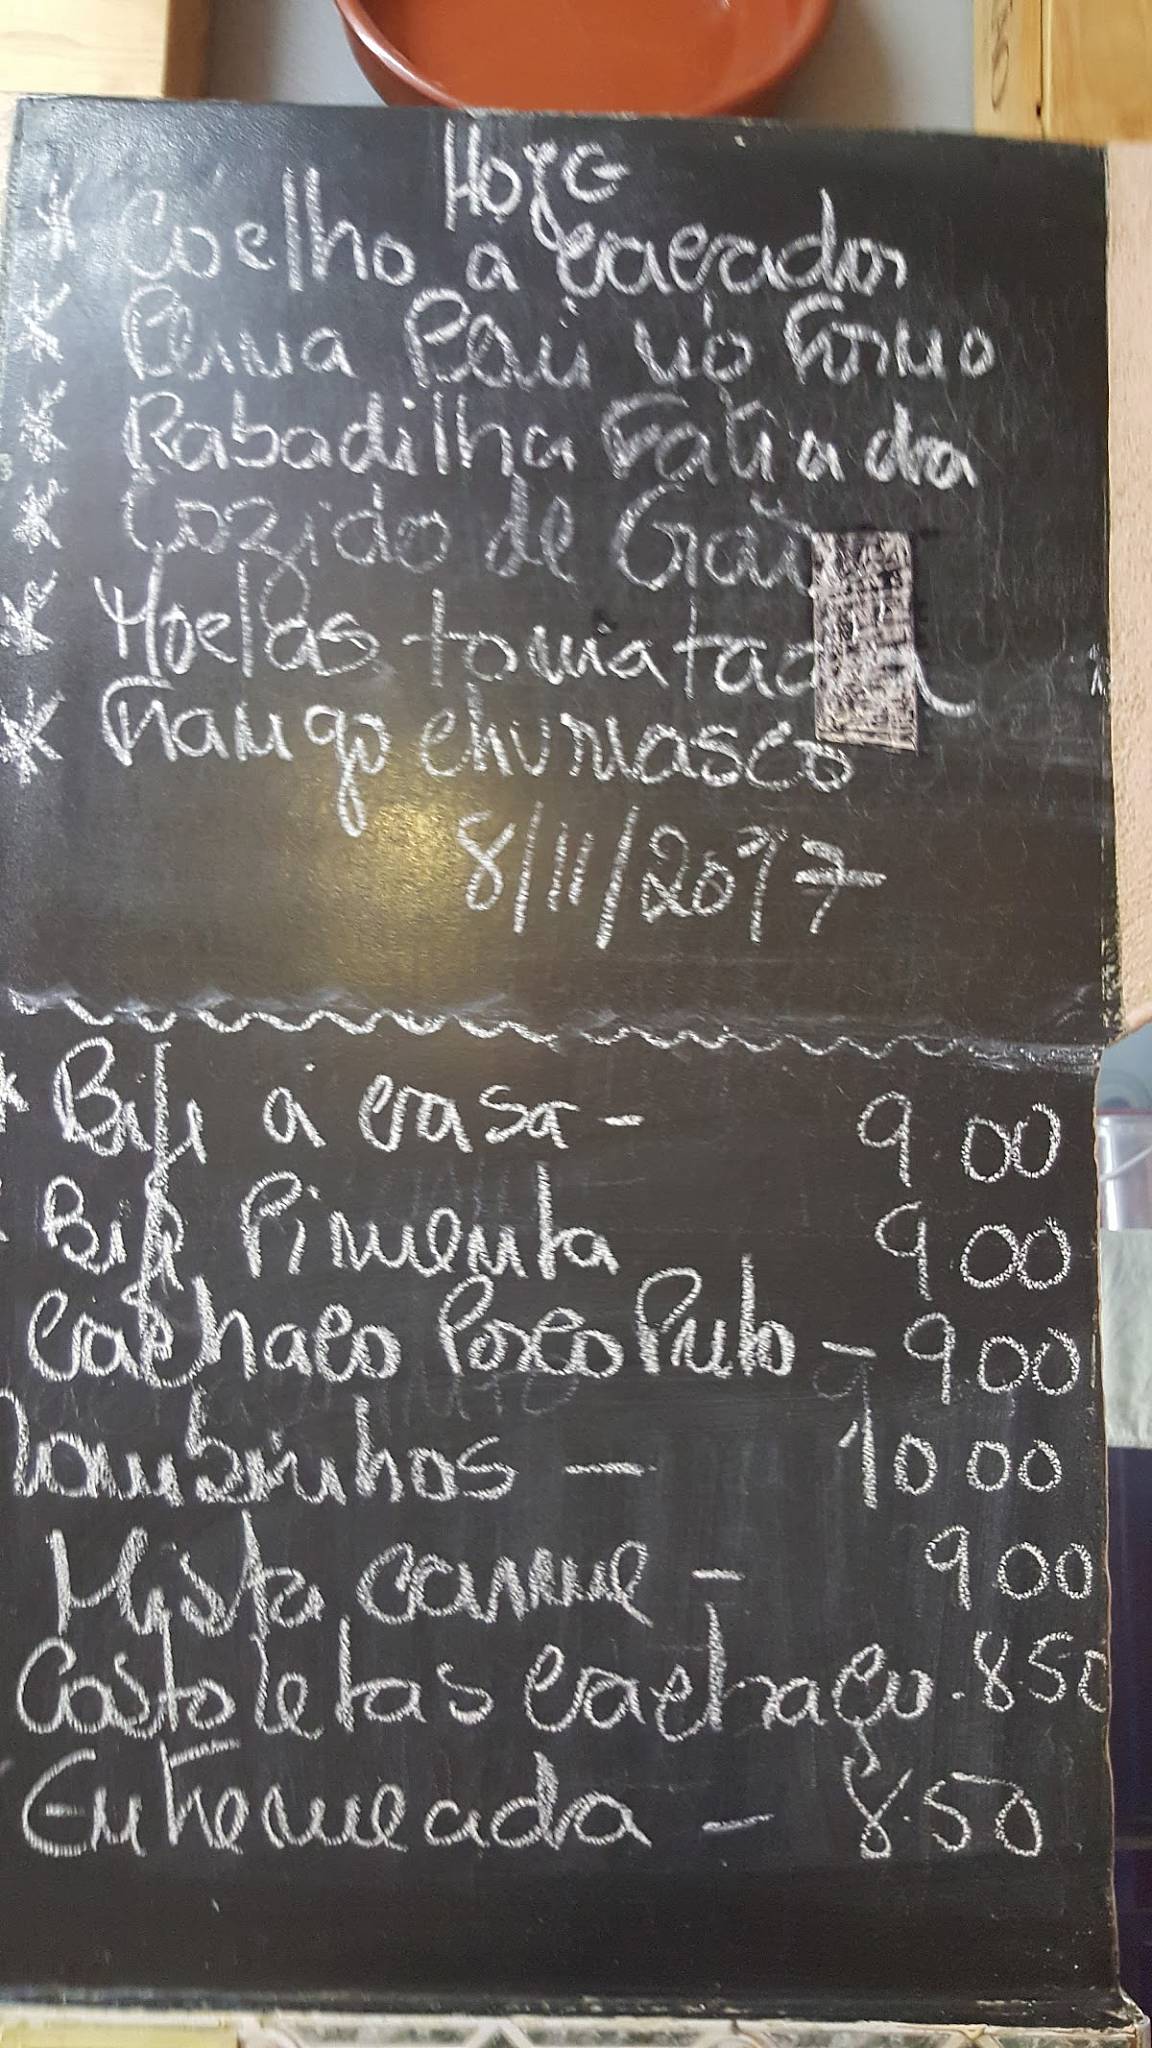 Hoje
* Coelho a caçador
* Perua Pau no Forno
* Rabadilha Fatiada
* Cozido de Grão
* Moelas tomatada
* Frango churrasco
8/11/2017
* Bife á casa - 9 00
Bife Pimenta 9 00
Cachaço Porco Preto - 9.00
Lombinhos - 10 00
Mista carne - 9 00
Costoletas cachaço. 8.50
Entremeada - 8.50